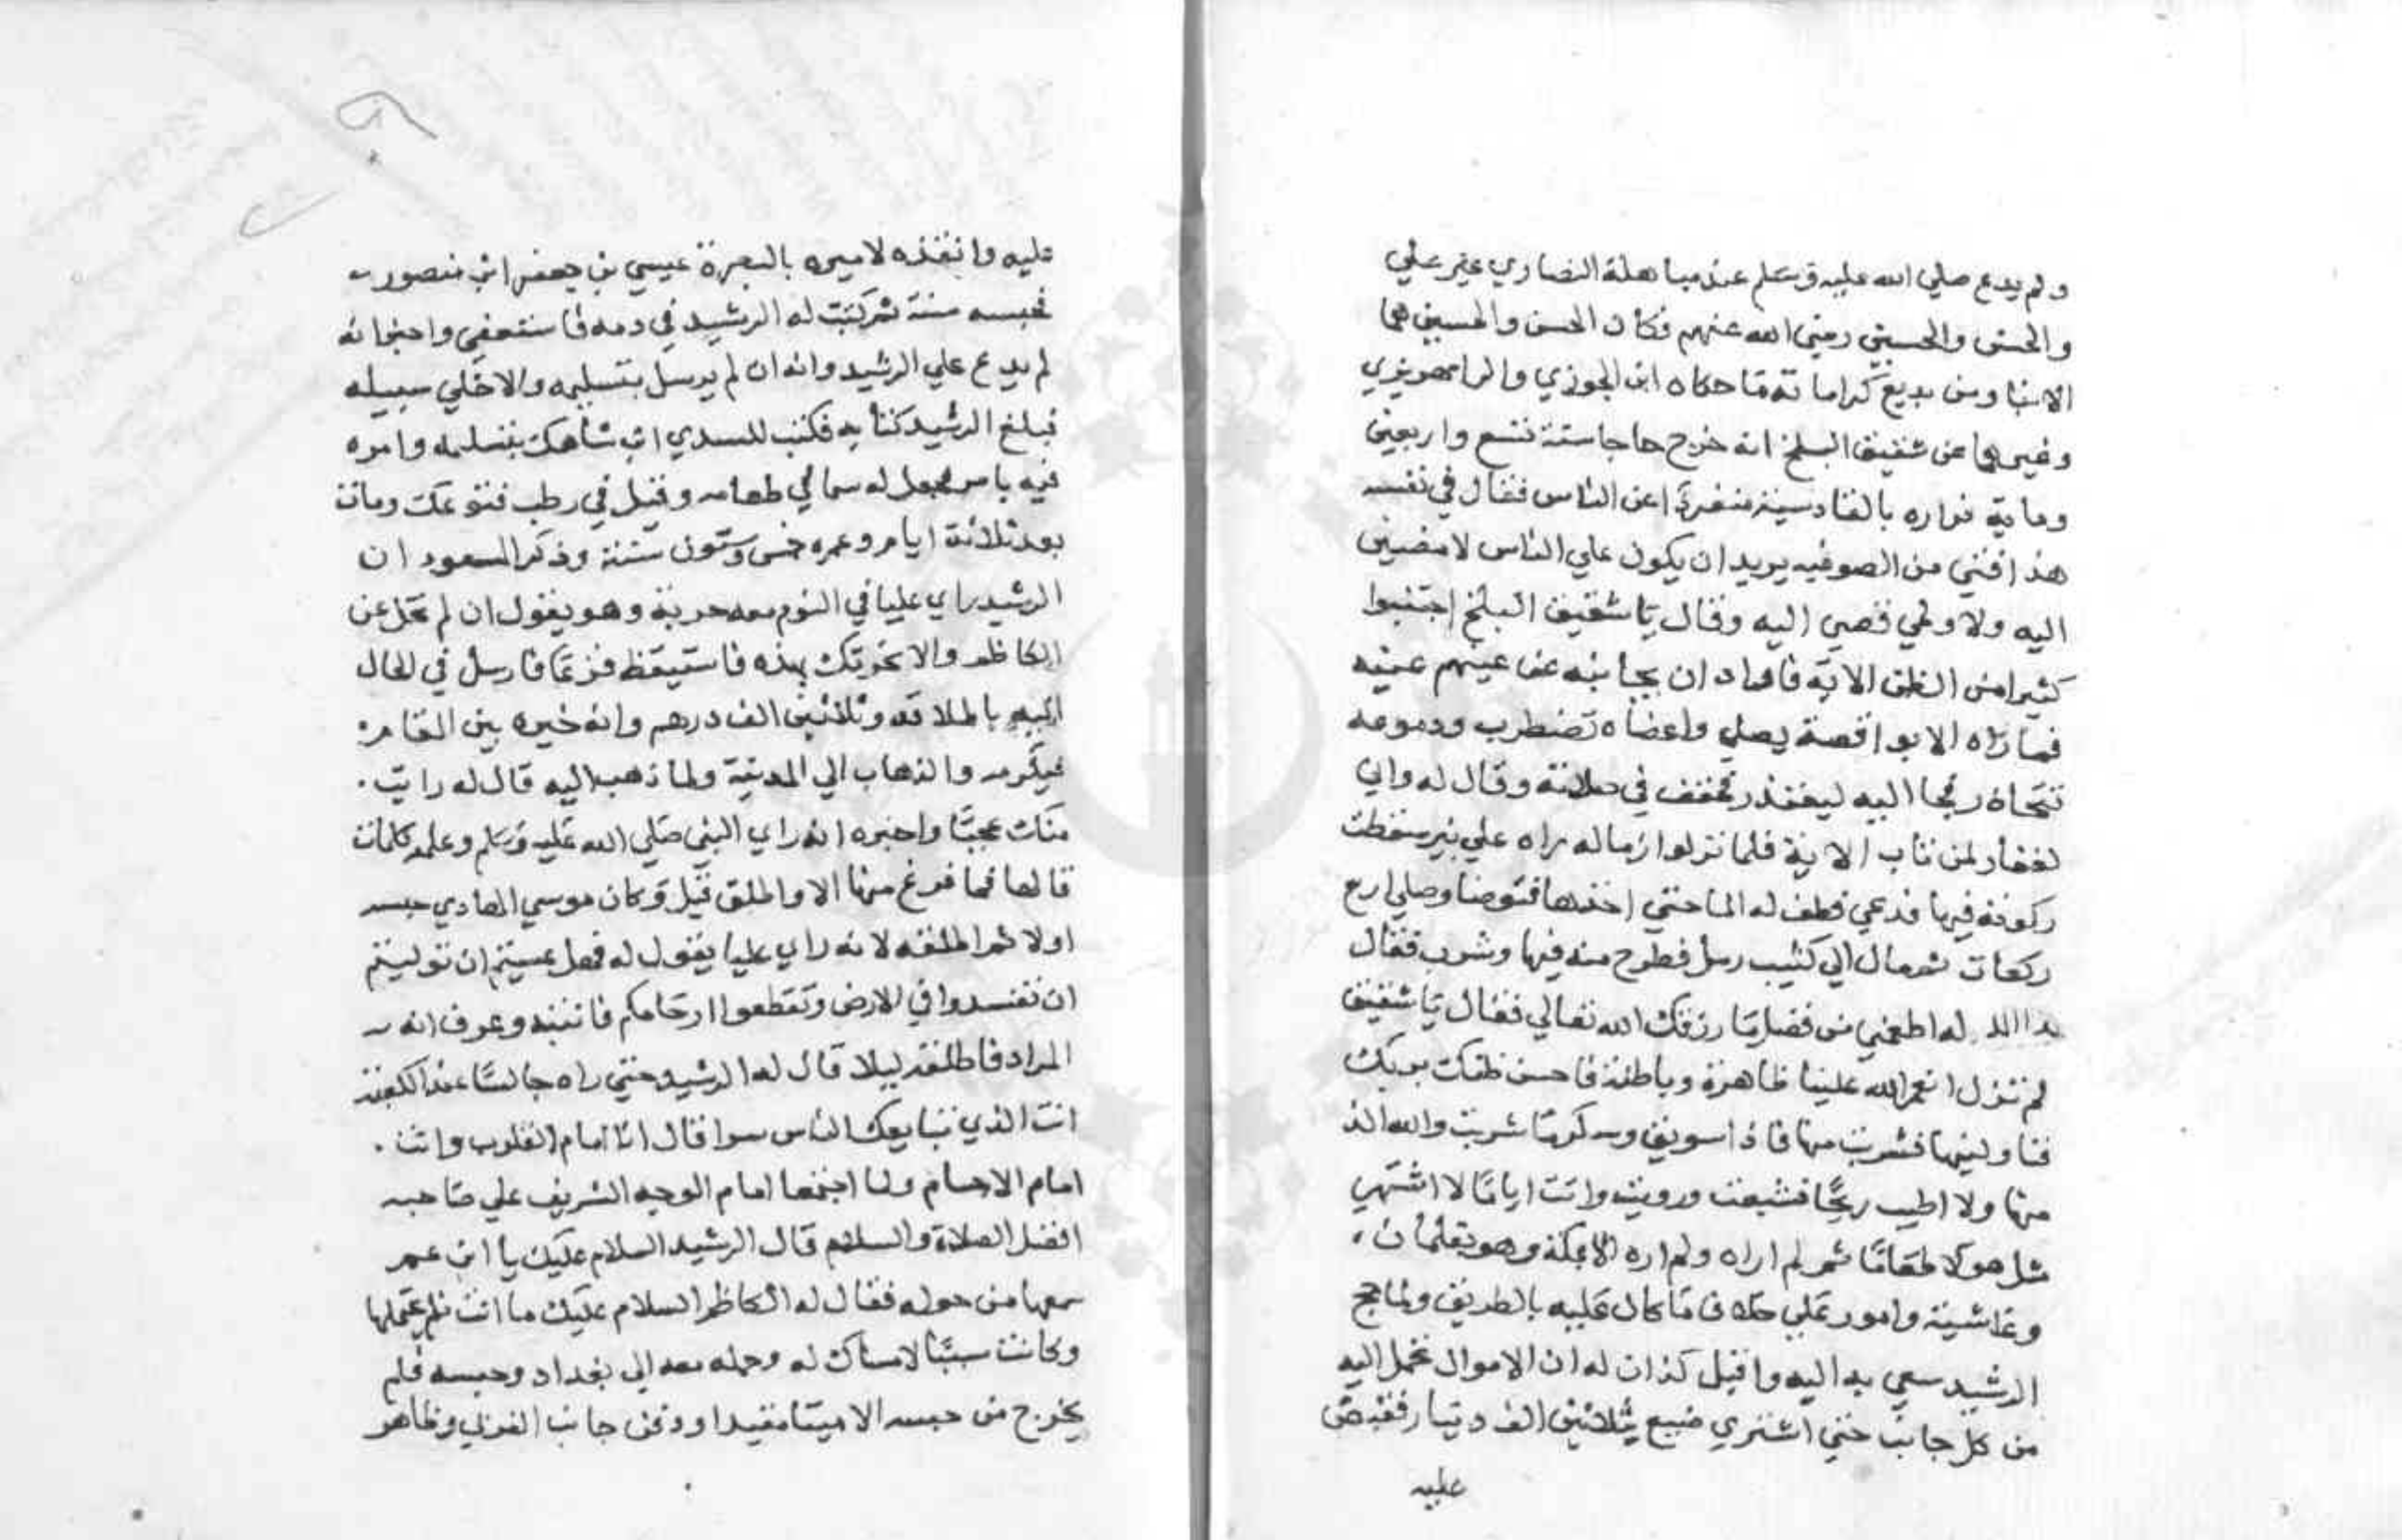 ولم يدع صلي الله عليه وسلم عند مباهلة النصاري غير علي
والحسن والحسين رضي الله عنهم فكان الحسن والحسين هما
الابنا ومن بديع كراماته ما حكاه ابن الجوزي والرامهرمزي
وغيرهما عن شقيق البلخي انه خرج حاجا سنة تسع واربعين
وماية فراه بالقادسية منفردا عن الناس فقال في نفسه
هذا فتي من الصوفيه يريد ان يكون علي الناس لامضين
اليه ولا فمضي اليه وقال يا شقيق البلخ اجتنبوا
كثيرا من الظن الاية فاراد ان عن عينهم
فما راه الا بواقصة يصلي واعضاه تضطرب ودموعه
تتحاد فجا اليه ليعتذر فخفف في صلاته وقال له واني
لغفار لمن تاب الاية فلما نزلوا زماله راه علي بير سقطت
ركوته فيها فدعي فطف له الما حتي اخذها فتوضا وصلي اربع
ركعات ثم مال الي كثيب رمل فطرح منه فيها وشرب فقال
له اطعمني من فضل ما رزقك الله تعالي فقال يا شقيق
لم تزل انعم الله علينا ظاهرة وباطنة فاحسن ظنك بربك
فناولنيها فشربت منها فاذا سويق وسكر ما شربت والله الذ
منها ولا اطيب ريحا فشبعت ورويت واقمت اياما لا اشتهي
مثل هولا طعاما ثم لم اراه ولم اره الا بمكة وهو بغلمان
وغاشية وامور علي خلاف ما كان عليه بالطريق ولما حج
الرشيد سعي به اليه وقيل كذان له ان الاموال تحمل اليه
من كل جانب حتي اشتري ضيع بثلاثين الف دينار فقبض
عليه
عليه وانفذه لاميره بالبصرة عيسي بن جعفر ابن منصور
فحبسه سنة ثم كتب له الرشيد في دمه فاستعفي واخبر انه
لم يدع علي الرشيد وانه ان لم يرسل بتسليمه والا خلي سبيله
فبلغ الرشيد كتابه فكتب للسدي ابن شاهك بتسلمه وامره
فيه بامر فجعل له سما في طعامه وقيل في رطب فتوعك ومات
بعد ثلاثة ايام وعمره خمس وستون سنة وذكر المسعود ان
الرشيد راي عليا في النوم معه حربة وهو يقول ان لم تخل عن
الكاظم والا نحرتك بهذه فاستيقظ فزعا فارسل في الحال
اليه باطلاقه وثلاثين الف درهم وانه خيره بين المقام
فيكرمه والذهاب الي المدينة ولما ذهب اليه قال له رايت
منك عجبا واخبره انه راي النبي صلي الله عليه وسلم وعلمه كلمات
قالها فما فرغ منها الا واطلق قيل وكان موسي الهادي حبسه
اولا ثم اطلقه لانه راي عليا يقول له فهل عسيتم ان توليتم
ان تفسدوا في الارض وتقطعوا ارحامكم فانتبه وعرف انه
المراد فاطلقه ليلا قال له الرشيد حين راه جالسا عند الكعبة
انت الذي تبايعك الناس سرا فقال انا امام القلوب وانت
امام الاجسام ولما اجتمعا امام الوجه الشريف علي صاحبه
افضل الصلاة والسلام قال الرشيد السلام عليك يا ابن عم
سمعها من حوله فقال له الكاظم السلام عليك يا ابت فلم يحتملها
وكانت سببا لامساك له وحمله معه الي بغداد وحبسه فلم
يخرج من حبسه الا ميتا مقيدا ودفن جانب الغربي وظاهر